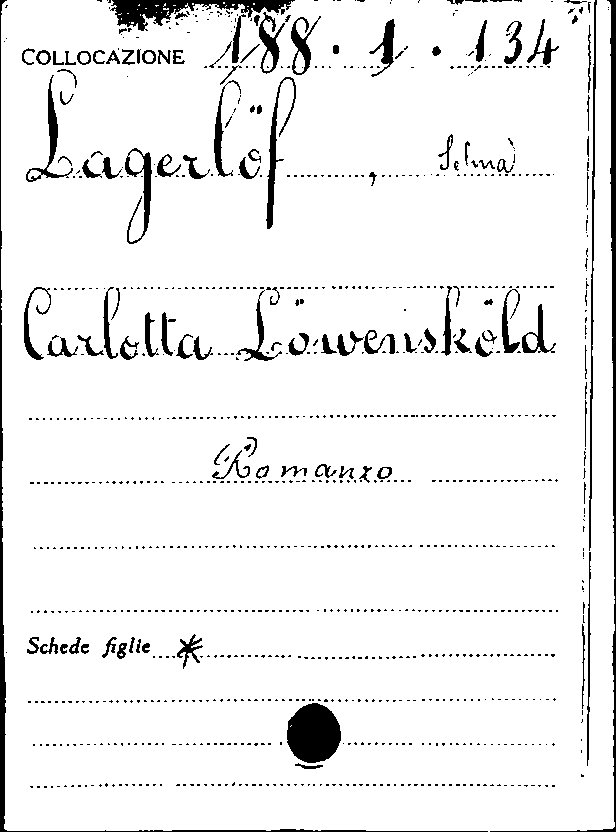 COLLOCAZIONE 188 · 1 · 134
Lagerlöf , Selma
Carlotta Löwensköld
Romanzo
Schede figlie *